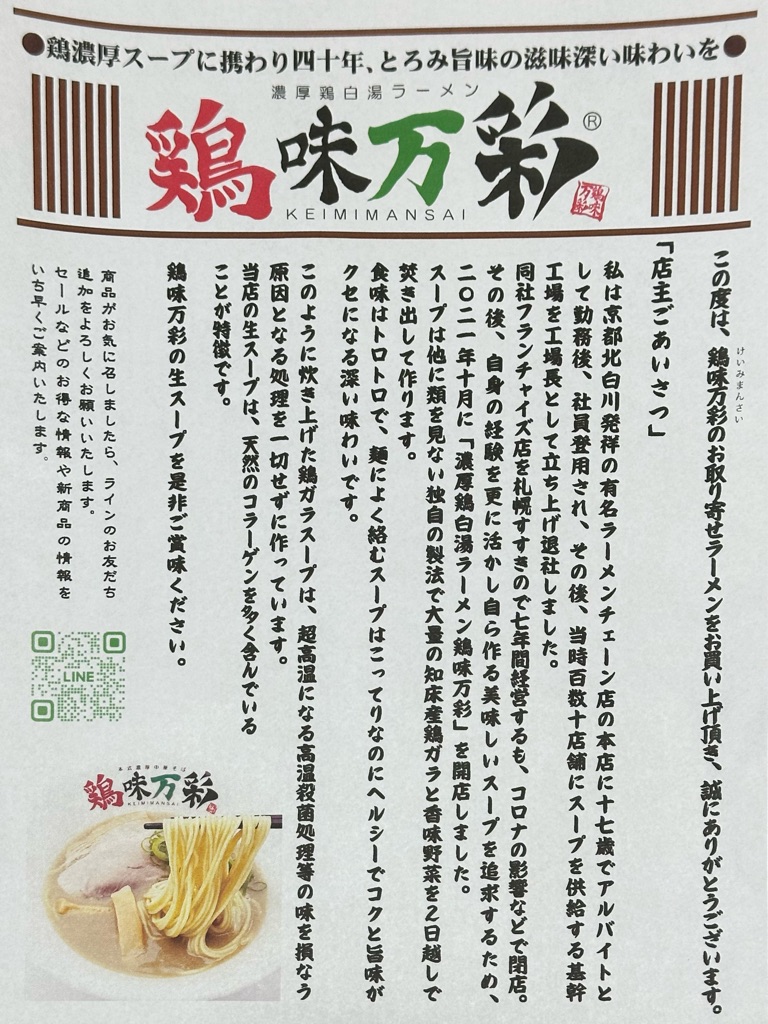 ●鶏濃厚スープに携わり四十年、とろみ旨味の滋味深い味わいを●
濃厚鶏白湯ラーメン
鶏味万彩®
鶏味万彩
KEIMIMANSAI
この度は、鶏味万彩のお取り寄せラーメンをお買い上げ頂き、誠にありがとうございます。
けいみまんさい
「店主ごあいさつ」
私は京都北白川発祥の有名ラーメンチェーン店の本店に十七歳でアルバイトと
して勤務後、社員登用され、その後、当時百数十店舗にスープを供給する基幹
工場を工場長として立ち上げ退社しました。
同社フランチャイズ店を札幌すすきので七年間経営するも、コロナの影響などで閉店。
その後、自身の経験を更に活かし自ら作る美味しいスープを追求するため、
二〇二一年十月に「濃厚鶏白湯ラーメン鶏味万彩」を開店しました。
スープは他に類を見ない独自の製法で大量の知床産鶏ガラと香味野菜を2日越しで
焚き出して作ります。
食味はトロトロで、麺によく絡むスープはこってりなのにヘルシーでコクと旨味が
クセになる深い味わいです。
このように炊き上げた鶏ガラスープは、超高温になる高温殺菌処理等の味を損なう
原因となる処理を一切せずに作っています。
当店の生スープは、天然のコラーゲンを多く含んでいる
ことが特徴です。
鶏味万彩の生スープを是非ご賞味ください。
商品がお気に召しましたら、ラインのお友だち
追加をよろしくお願いいたします。
セールなどのお得な情報や新商品の情報を
いち早くご案内いたします。
LINE
鶏味万彩
KEIMIMANSAI